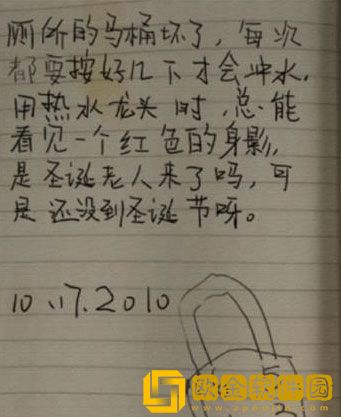 厕所的马桶坏了，每次
都要按好几下才会冲水.
用热水龙头时，总能
看见一个红色的身影，
是圣诞老人来了吗，可
是还没到圣诞节呀。
10.17.2010
欧金软件园